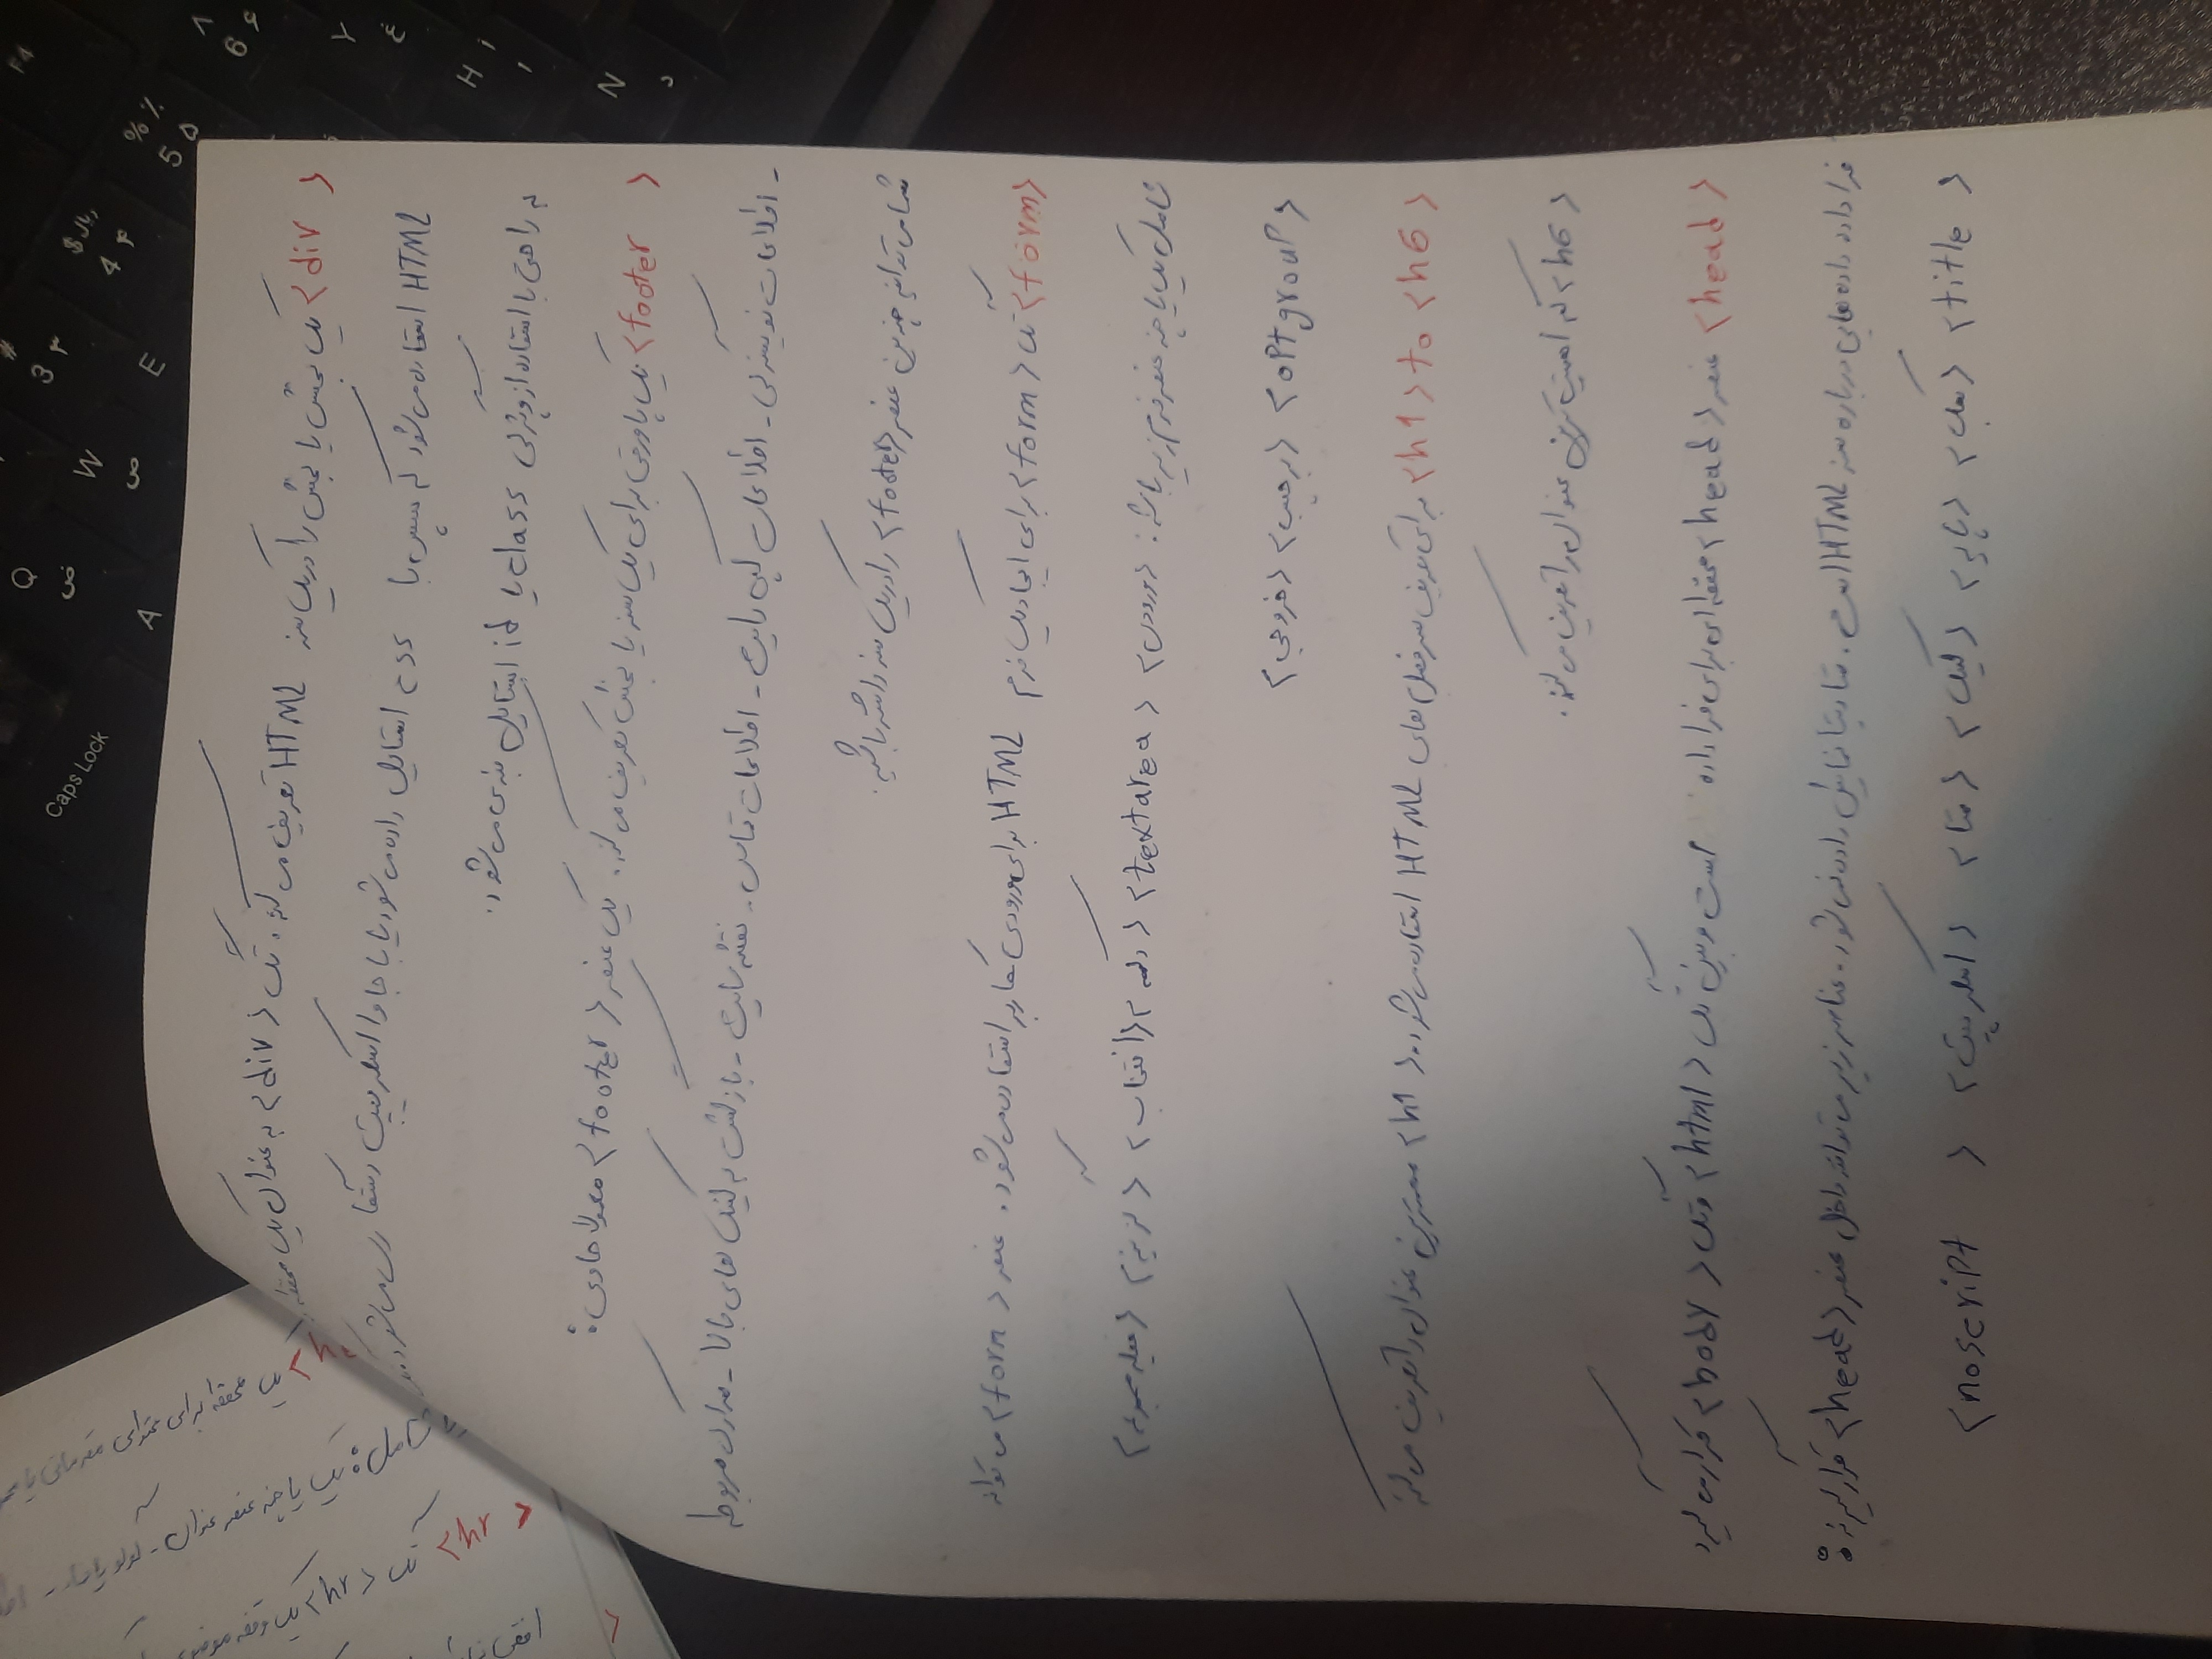 <div> یک بخش یا بخش را در یک سند HTML تعریف می کند. تگ <div> به عنوان یک محفظه
HTML استفاده می شود که سپس با css استایل داده می شود یا با جاوا اسکریپت دستکاری می شود.
به راحتی با استفاده از ویژگی class یا id استایل بندی می شود.
<footer> یک پاورقی برای یک سند یا بخش تعریف می کند. یک عنصر <footer> معمولا حاوی:
- اطلاعات نویسندگی - اطلاعات کپی رایت - اطلاعات تماس - نقشه سایت - بازگشت به لینک های بالا - مدارک مربوطه
شما می توانید چندین عنصر <footer> را در یک سند داشته باشید.
<form> تگ <form> برای ایجاد یک فرم HTML برای ورودی کاربر استفاده می شود. عنصر <form> می تواند
شامل یک یا چند عنصر فرم زیر باشد: <ورودی> <textarea> <دکمه> <انتخاب> <گزینه> <فیلد مجموعه>
<optgroup> <برچسب> <خروجی>
<h1> to <h6> برای تعریف سرفصل های HTML استفاده می شود. <h1> مهمترین عنوان را تعریف می کند
<h6> کم اهمیت ترین عنوان را تعریف می کند.
<head> عنصر <head> محفظه ای برای فراداده است و بین تگ <html> و تگ <body> قرار می گیرد
فراداده داده هایی درباره سند HTML است. متادیتا نمایش داده نمی شود. عناصر زیر می توانند داخل عنصر <head> قرار گیرند:
<title> <سبک> <پایه> <لینک> <متا> <اسکریپت> <noscript>
Caps Lock
Q ض
W ص
E
A
3 ۳
$ ریال 4 ۴
% ٪ 5 ۵
6 ۶
F4
H
N